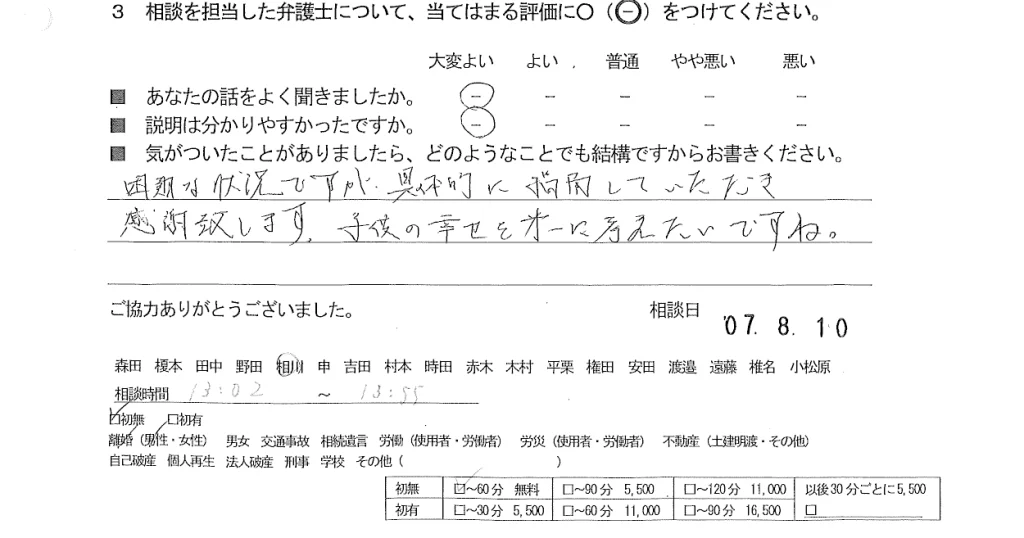 3 相談を担当した弁護士について、当てはまる評価に○（⊖）をつけてください。
大変よい よい 普通 やや悪い 悪い
■ あなたの話をよく聞きましたか。 － － － － －
■ 説明は分かりやすかったですか。 － － － － －
■ 気がついたことがありましたら、どのようなことでも結構ですからお書きください。
困難な状況ですが、具体的に指南していただき
感謝致します。子供の幸せを第一に考えたいですね。
ご協力ありがとうございました。 相談日 '07. 8. 10
森田 榎本 田中 野田 相川 申 吉田 村本 時田 赤木 木村 平栗 権田 安田 渡邉 遠藤 椎名 小松原
相談時間 13:02 ～ 13:55
☑初無 □初有
離婚（男性・女性） 男女 交通事故 相続遺言 労働（使用者・労働者） 労災（使用者・労働者） 不動産（土建明渡・その他）
自己破産 個人再生 法人破産 刑事 学校 その他（ ）
初無 ☑～60分 無料 □～90分 5,500 □～120分 11,000 以後30分ごとに5,500
初有 □～30分 5,500 □～60分 11,000 □～90分 16,500 □